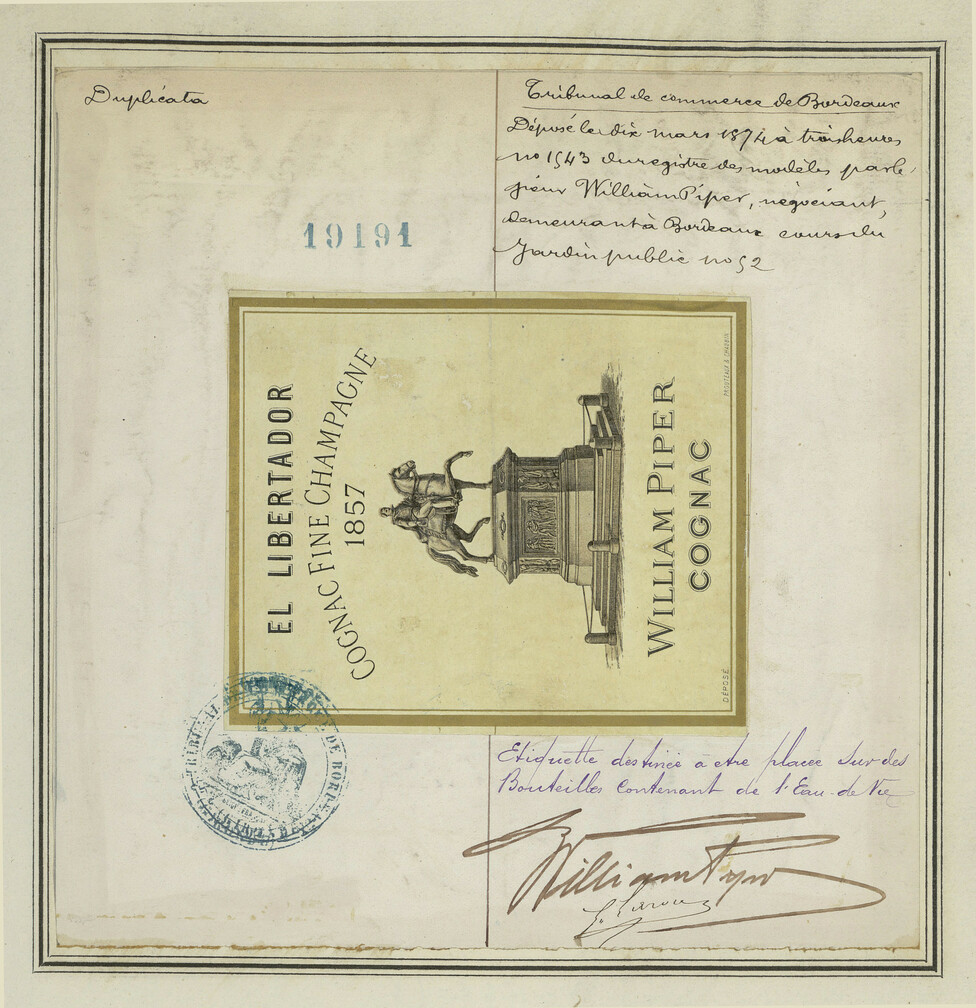 Duplicata
Tribunal de commerce de Bordeaux
Déposé le dix mars 1874 à trois heures
no 1543 du registre des modèles par le
sieur William Piper, négociant,
demeurant à Bordeaux cours du
Jardin public no 52
19191
EL LIBERTADOR
COGNAC FINE CHAMPAGNE
1857
WILLIAM PIPER
COGNAC
DÉPOSÉ
Etiquette destinée a etre placée Sur des
Bouteilles Contenant de l'Eau-de Vie
William Piper